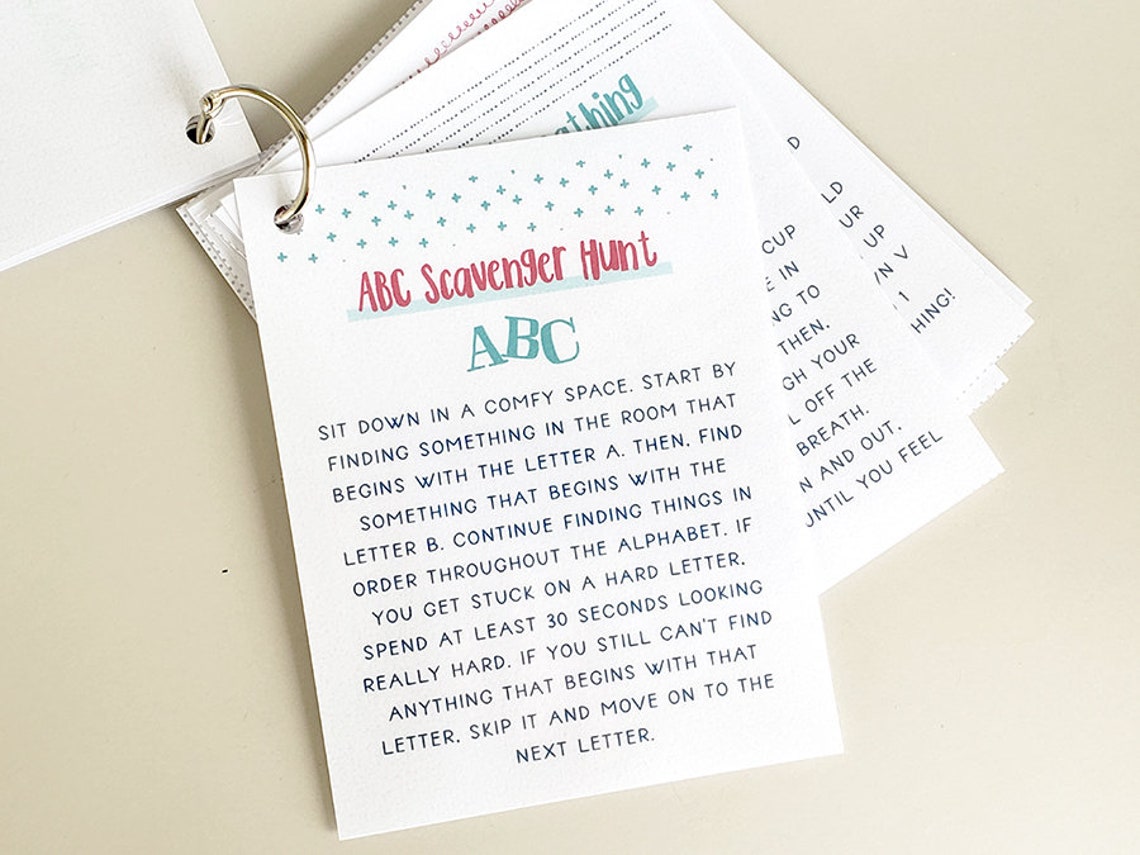 ABC Scavenger Hunt
ABC
SIT DOWN IN A COMFY SPACE. START BY
FINDING SOMETHING IN THE ROOM THAT
BEGINS WITH THE LETTER A. THEN, FIND
SOMETHING THAT BEGINS WITH THE
LETTER B. CONTINUE FINDING THINGS IN
ORDER THROUGHOUT THE ALPHABET. IF
YOU GET STUCK ON A HARD LETTER,
SPEND AT LEAST 30 SECONDS LOOKING
REALLY HARD. IF YOU STILL CAN'T FIND
ANYTHING THAT BEGINS WITH THAT
LETTER, SKIP IT AND MOVE ON TO THE
NEXT LETTER.
CUP
IN
TO
THEN,
YOUR
OFF THE
BREATH.
AND OUT,
UNTIL YOU FEEL
UP
V
1